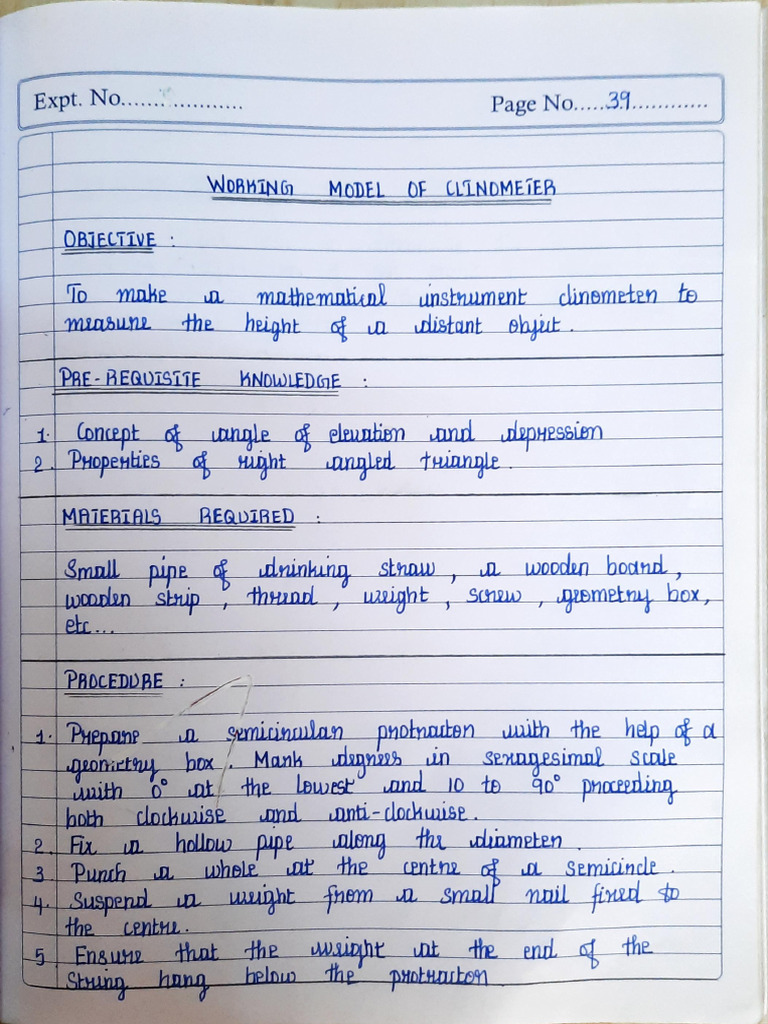 Expt. No.....................
Page No.....39............
WORKING MODEL OF CLINOMETER
OBJECTIVE :
To make a mathematical instrument clinometer to
measure the height of a distant object.
PRE-REQUISITE KNOWLEDGE :
1. Concept of angle of elevation and depression
2. Properties of right angled triangle.
MATERIALS REQUIRED :
Small pipe of drinking straw, a wooden board,
wooden strip, thread, weight, screw, geometry box,
etc...
PROCEDURE :
1. Prepare a semicircular protractor with the help of a
geometry box. Mark degrees in sexagesimal scale
with 0° at the lowest and 10 to 90° proceeding
both clockwise and anti-clockwise.
2. Fix a hollow pipe along the diameter.
3 Punch a whole at the centre of a semicircle.
4. Suspend a weight from a small nail fixed to
the centre.
5 Ensure that the weight at the end of the
String hang below the protractor